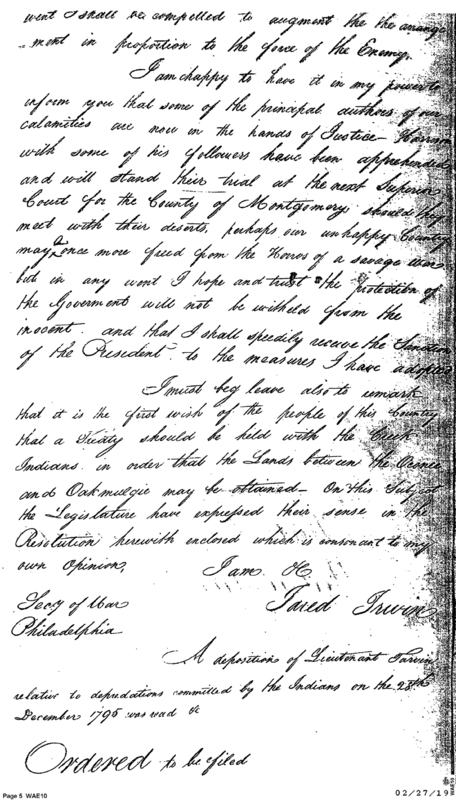 went I shall be compelled to augment the the arrange
-ment in proportion to the force of the Enemy.
I am happy to have it in my power to
inform you that some of the principal authors of our
calamities are now in the hands of Justice - Harrison
with some of his followers have been apprehended
and will stand their trial at the next Superior
Court for the County of Montgomery should they
meet with their deserts, perhaps our unhappy County
may once more freed from the Horros of a savage war
but in any went I hope and trust the protection of
the Goverment will not be witheld from the
inocent. and that I shall speedily receive the Sanction
of the President to the measures I have adopted
I must beg leave also to remark
that it is the first wish of the people of this Country
that a Treaty should be held with the Creek
Indians in order that the Lands between the Oconee
and Oakmulgie may be obtained - On this Subject
the Legislature have expressed their sense in the
Resolution herewith enclosed which is consonant to my
own Opinion,      I am &
Secy of War      Jared Irwin
Philadelphia
A deposition of Lieutenant Tarvin
relative to depredations committed by the Indians on the 28th
December 1795 was read &c
Ordered to be filed
Page 5 WAE10
02/27/19
WAE10